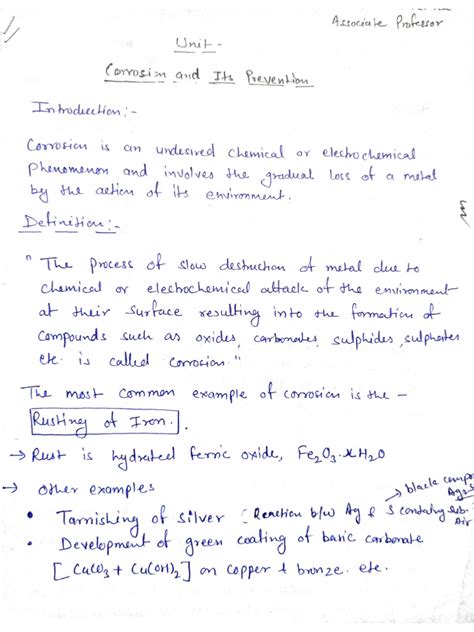 Associate Professor
Unit -
Corrosion and Its Prevention
Introduction :-
Corrosion is an undesired chemical or electrochemical
Phenomenon and involves the gradual loss of a metal
by the action of its environment.
Definition :-
" The process of slow destruction of metal due to
chemical or electrochemical attack of the environment
at their surface resulting into the formation of
compounds such as oxides, carbonates, sulphides, sulphates
etc. is called corrosion. "
The most common example of corrosion is the -
Rusting of Iron.
→ Rust is hydrated ferric oxide, Fe2O3.xH2O
→ Other examples
black
Ag2S
• Tarnishing of silver (Reaction b/w Ag & S containing sub.
Air
• Development of green coating of basic carbonate
[CuCO3 + Cu(OH)2] on copper & bronze. etc.